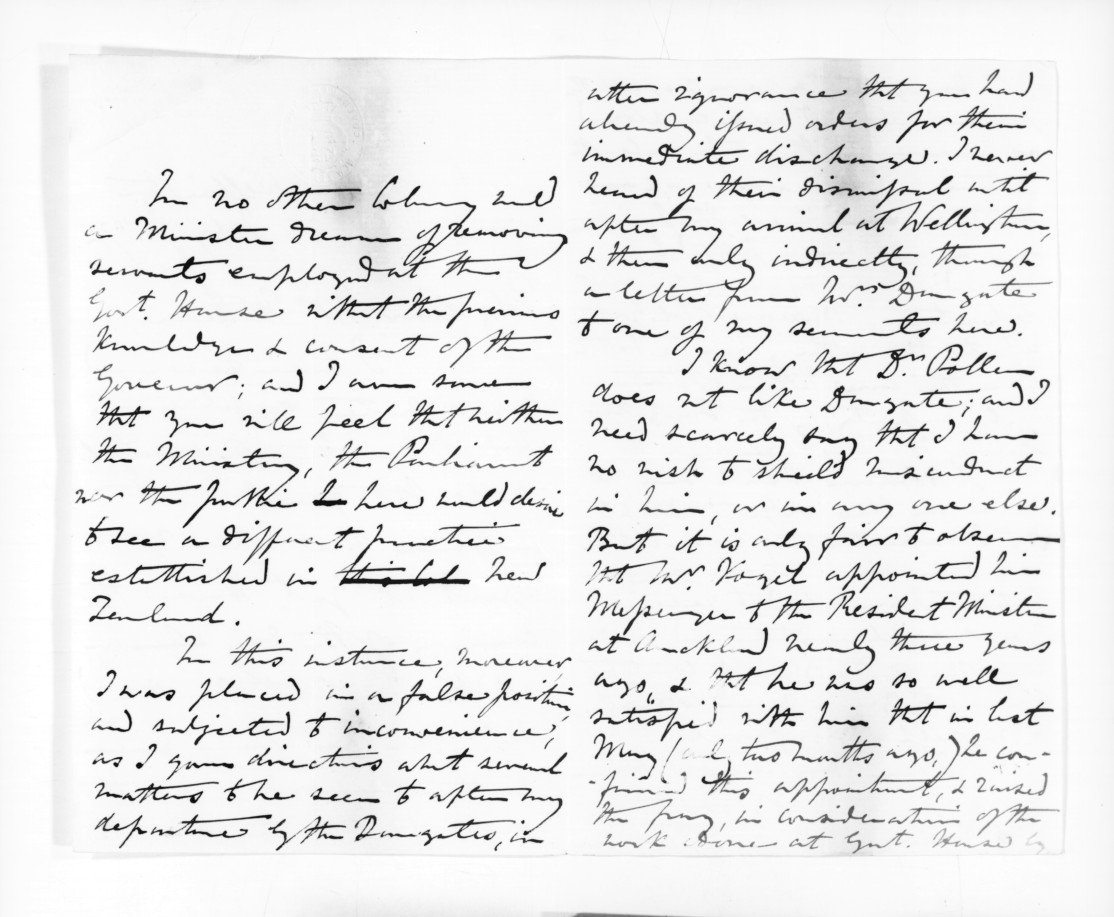 In no other Colony would
a Minister dream of removing
servants employed at the
Govt. House without the previous
knowledge & consent of the
Governor; and I am sure
that you will feel that neither
the Ministry, the Parliament
nor the public here would desire
to see a different practice
established in this Col New
Zealand.
In this instance, moreover,
I was placed in a false position,
and subjected to inconvenience,
as I gave directions about several
matters to be seen to after my
departure by the Dungates, in
utter ignorance that you had
already issued orders for their
immediate discharge. I never
heard of their dismissal until
after my arrival at Wellington,
& then only indirectly, through
a letter from Mrs. Dungate
to one of my servants here.
I know that Dr. Pollen
does not like Dungate; and I
need scarcely say that I have
no wish to shield misconduct
in him, or in any one else.
But it is only fair to observe
that Mr Vogel appointed him
Messenger to the Resident Minister
at Auckland nearly three years
ago, & that he was so well
satisfied with him that in last
May (only two months ago,) he con-
-firmed this appointment, & raised
the pay, in consideration of the
work done at Govt. House by